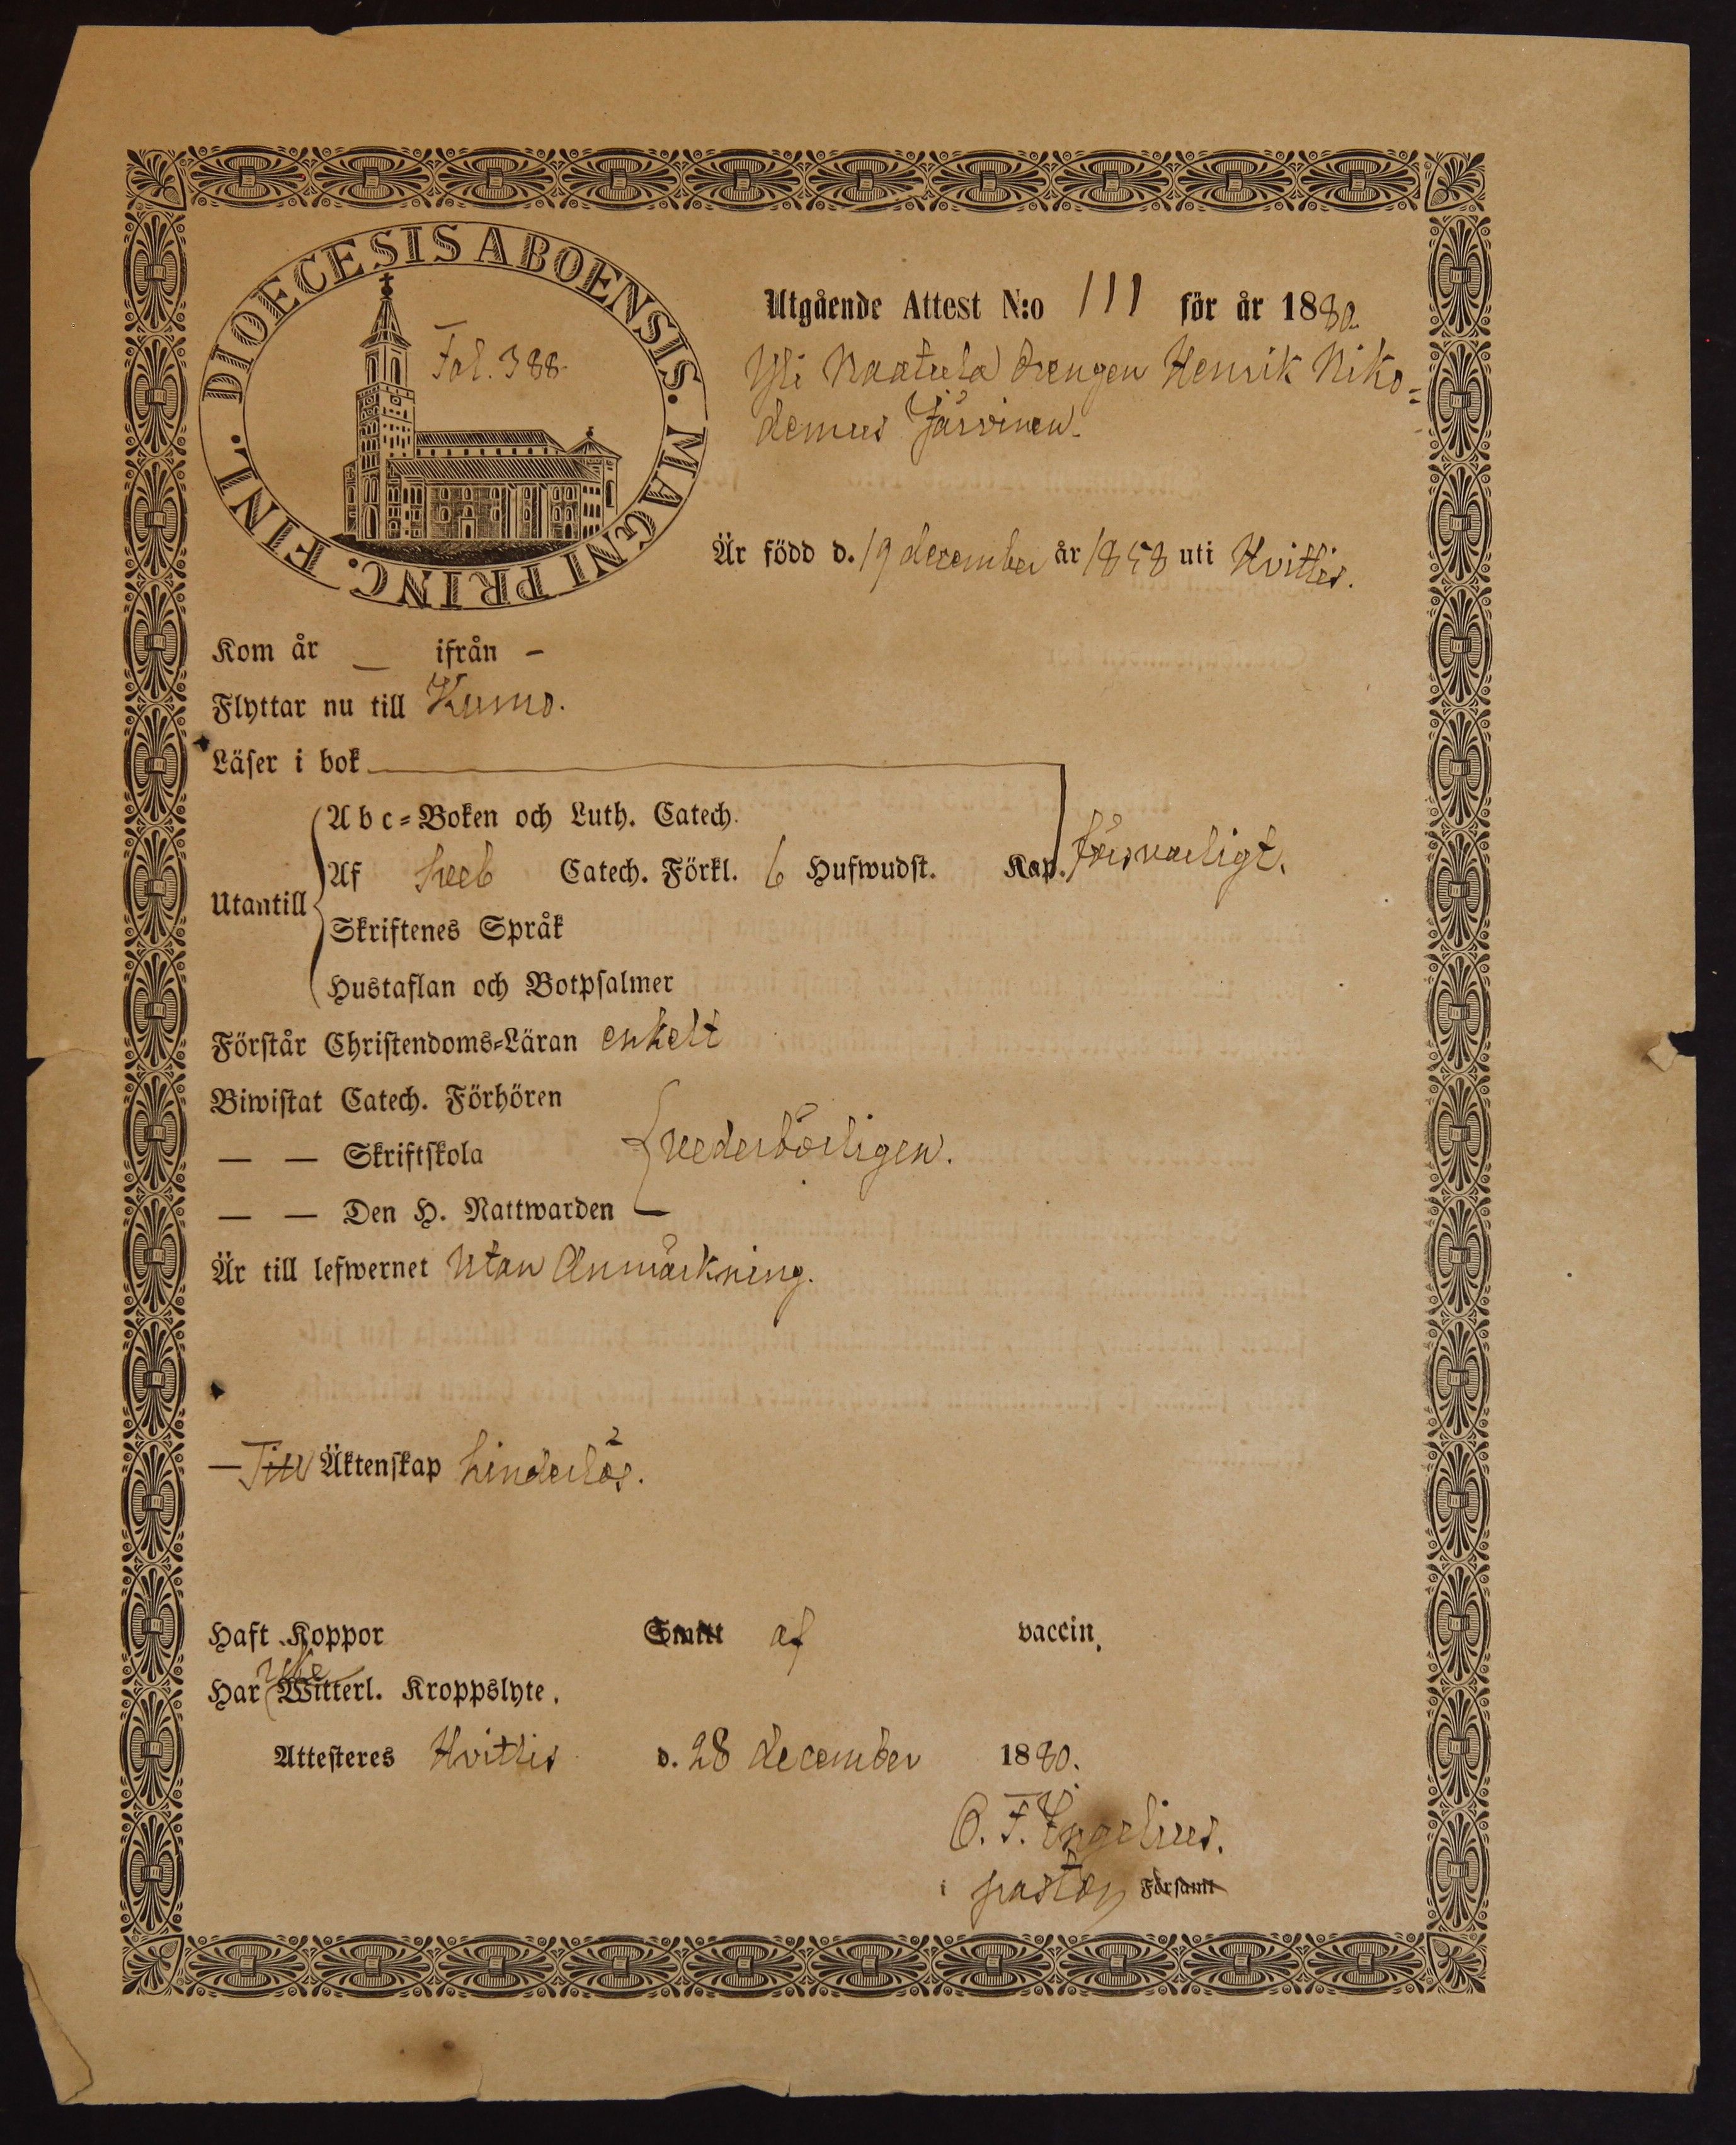 DIOECESIS ABOENSIS. MAGNI PRINC. FINL.
Fol. 388.
Utgående Attest N:o 111 för år 1880.
Yli Naatula drengen Henrik Niko=
demus Järvinen.
Är född d. 19 december år 1858 uti Hvittis.
Kom år — ifrån –
Flyttar nu till Kumo.
Läser i bok
Abc=Boken och Luth. Catech.
Utantill Af Catech. Förkl. 6 Hufwudst. Kap. försvarligt.
Skriftenes Språk
Hustaflan och Botpsalmer
Förstår Christendoms=Läran enkelt
Biwistat Catech. Förhören
— — Skriftskola vederbörligen.
— — Den H. Nattwarden
Är till lefwernet utan Anmärkning.
— Till Äktenskap hinderlös.
Haft Koppor Smitt af vaccin,
Har icke Witterl. Kroppslyte.
Attesteres Hvittis d. 28 december 1880.
O. F. Ingelius.
i pastor Församl